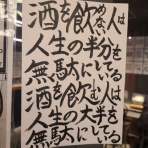 酒を飲めない人は
人生の半分を
無駄にしている
酒を飲む人は
人生の大半を
無駄にしている